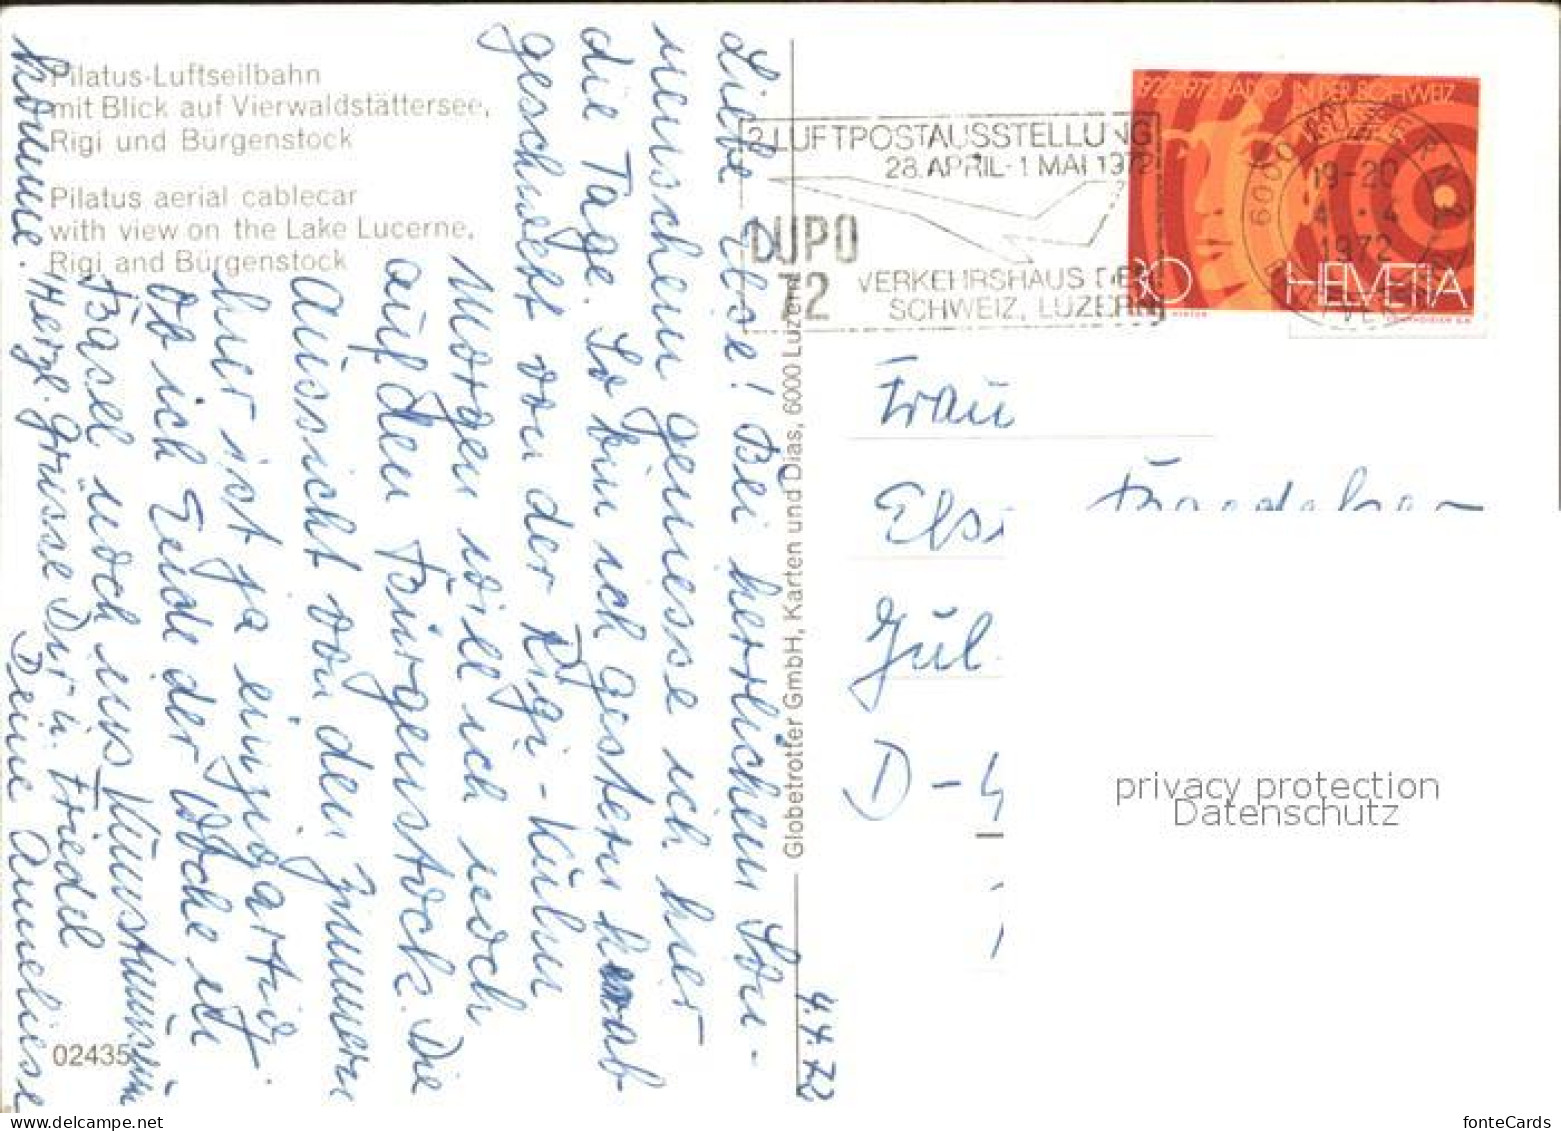 Pilatus-Luftseilbahn
mit Blick auf Vierwaldstättersee,
Rigi und Bürgenstock
Pilatus aerial cablecar
with view on the Lake Lucerne,
Rigi and Bürgenstock
02435
Globetrotter GmbH, Karten und Dias, 6000 Luzern
4.4.72
Liebe Else! Bei herrlichem Son-
nenschein geniesse ich hier
die Tage. So bin ich gestern herab
geschwebt von der Rigi-Kulm
Morgen will ich noch
auf den Bürgenstock. Die
Aussicht von den Zimmern
hier ist ja einzigartig.
Ob ich Ende der Woche in
Basel noch ins Kunstmuseum
komme. Herzl. Grüsse Dir u. Friedel
Deine Anneliese
2. LUFTPOSTAUSSTELLUNG
28. APRIL - 1 MAI 1972
LUPO
72
VERKEHRSHAUS DER
SCHWEIZ, LUZERN
1922-1972 RADIO IN DER SCHWEIZ
80 HELVETIA
6000 LUZERN 2
19-20
4.-4.
1972
Frau
Els
Gül
D-4
privacy protection
Datenschutz
fonteCards